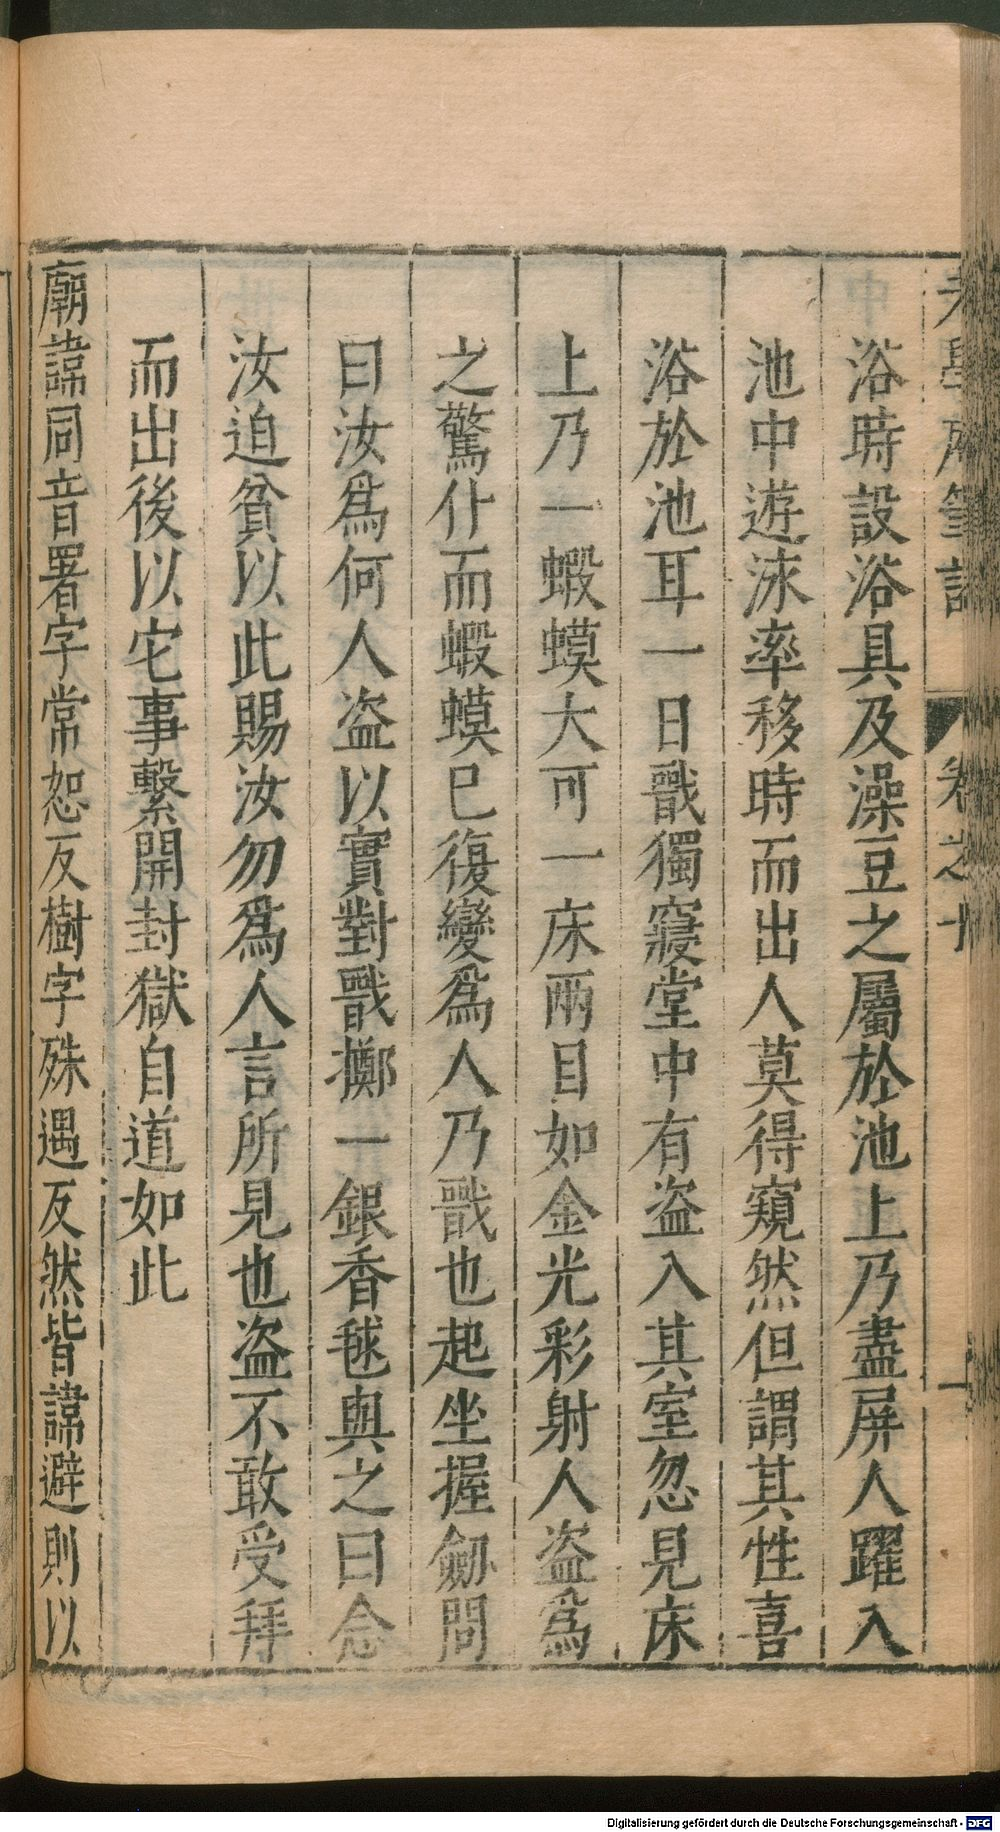 浴時設浴具及澡豆之屬於池上乃盡屏人躍入
池中遊泳率移時而出人莫得窺然但謂其性喜
浴於池耳一日戬獨寢堂中有盗入其室忽見床
上乃一蝦蟆大可一床兩目如金光彩射人盗為
之驚仆而蝦蟆已復變為人乃戬也起坐握劒問
曰汝為何人盗以實對戬擲一銀香毬與之曰念
汝迫貧以此賜汝勿為人言所見也盗不敢受拜
而出後以它事繫開封獄自道如此
廟諱同音署字常恕反樹字殊遇反然皆諱避則以
卷之十
Digitalisierung gefördert durch die Deutsche Forschungsgemeinschaft - DFG